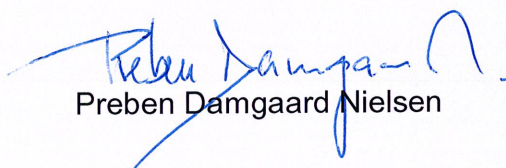 Preben Damgaard N.
Preben Damgaard Nielsen